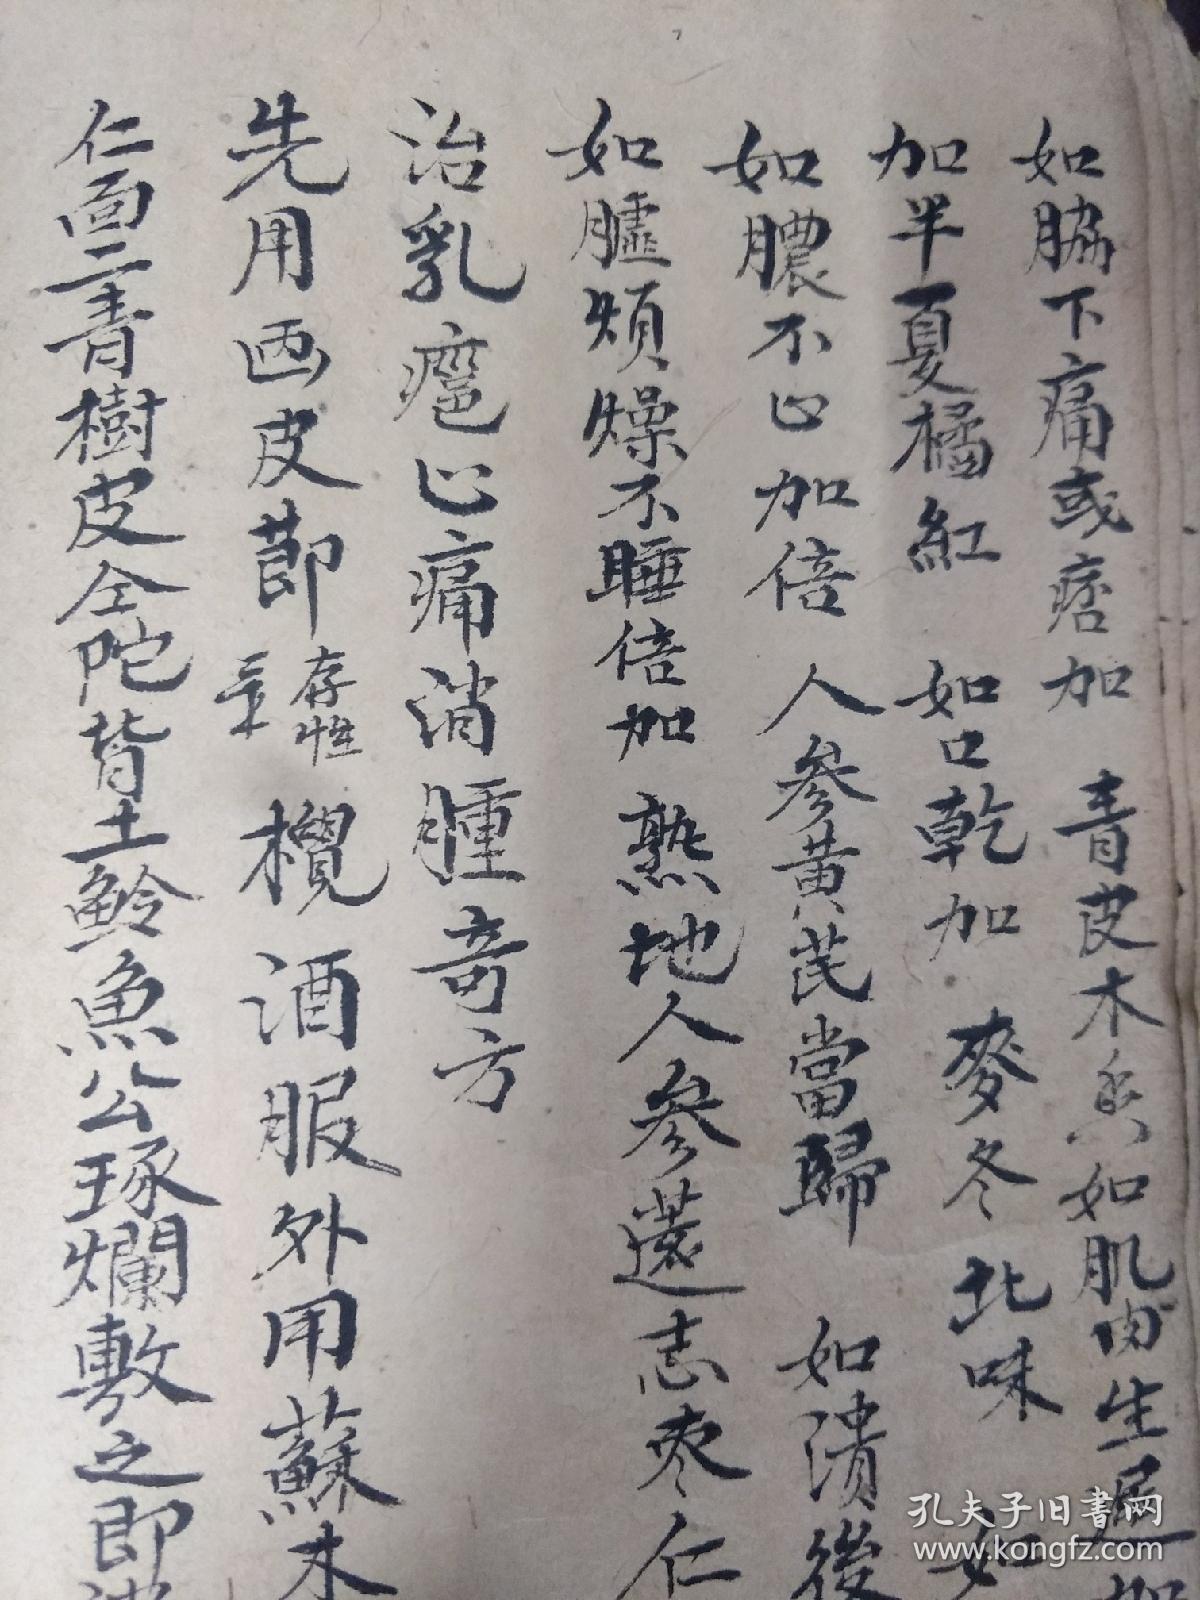 如脇下痛或痞加 青皮木香如肌肉生遲加
加半夏橘紅 如口乾加 麥冬北味 如
如膿不止加倍 人參黃芪當歸 如潰後
如膿煩燥不睡倍加 熟地人參遠志枣仁
治乳瘡止痛消腫奇方
先用西皮莭 存性 欖酒服外用蘇木
仁面二青樹皮仝陀背土鯪魚公琢爛敷之即
孔夫子旧書网
www.kongfz.com